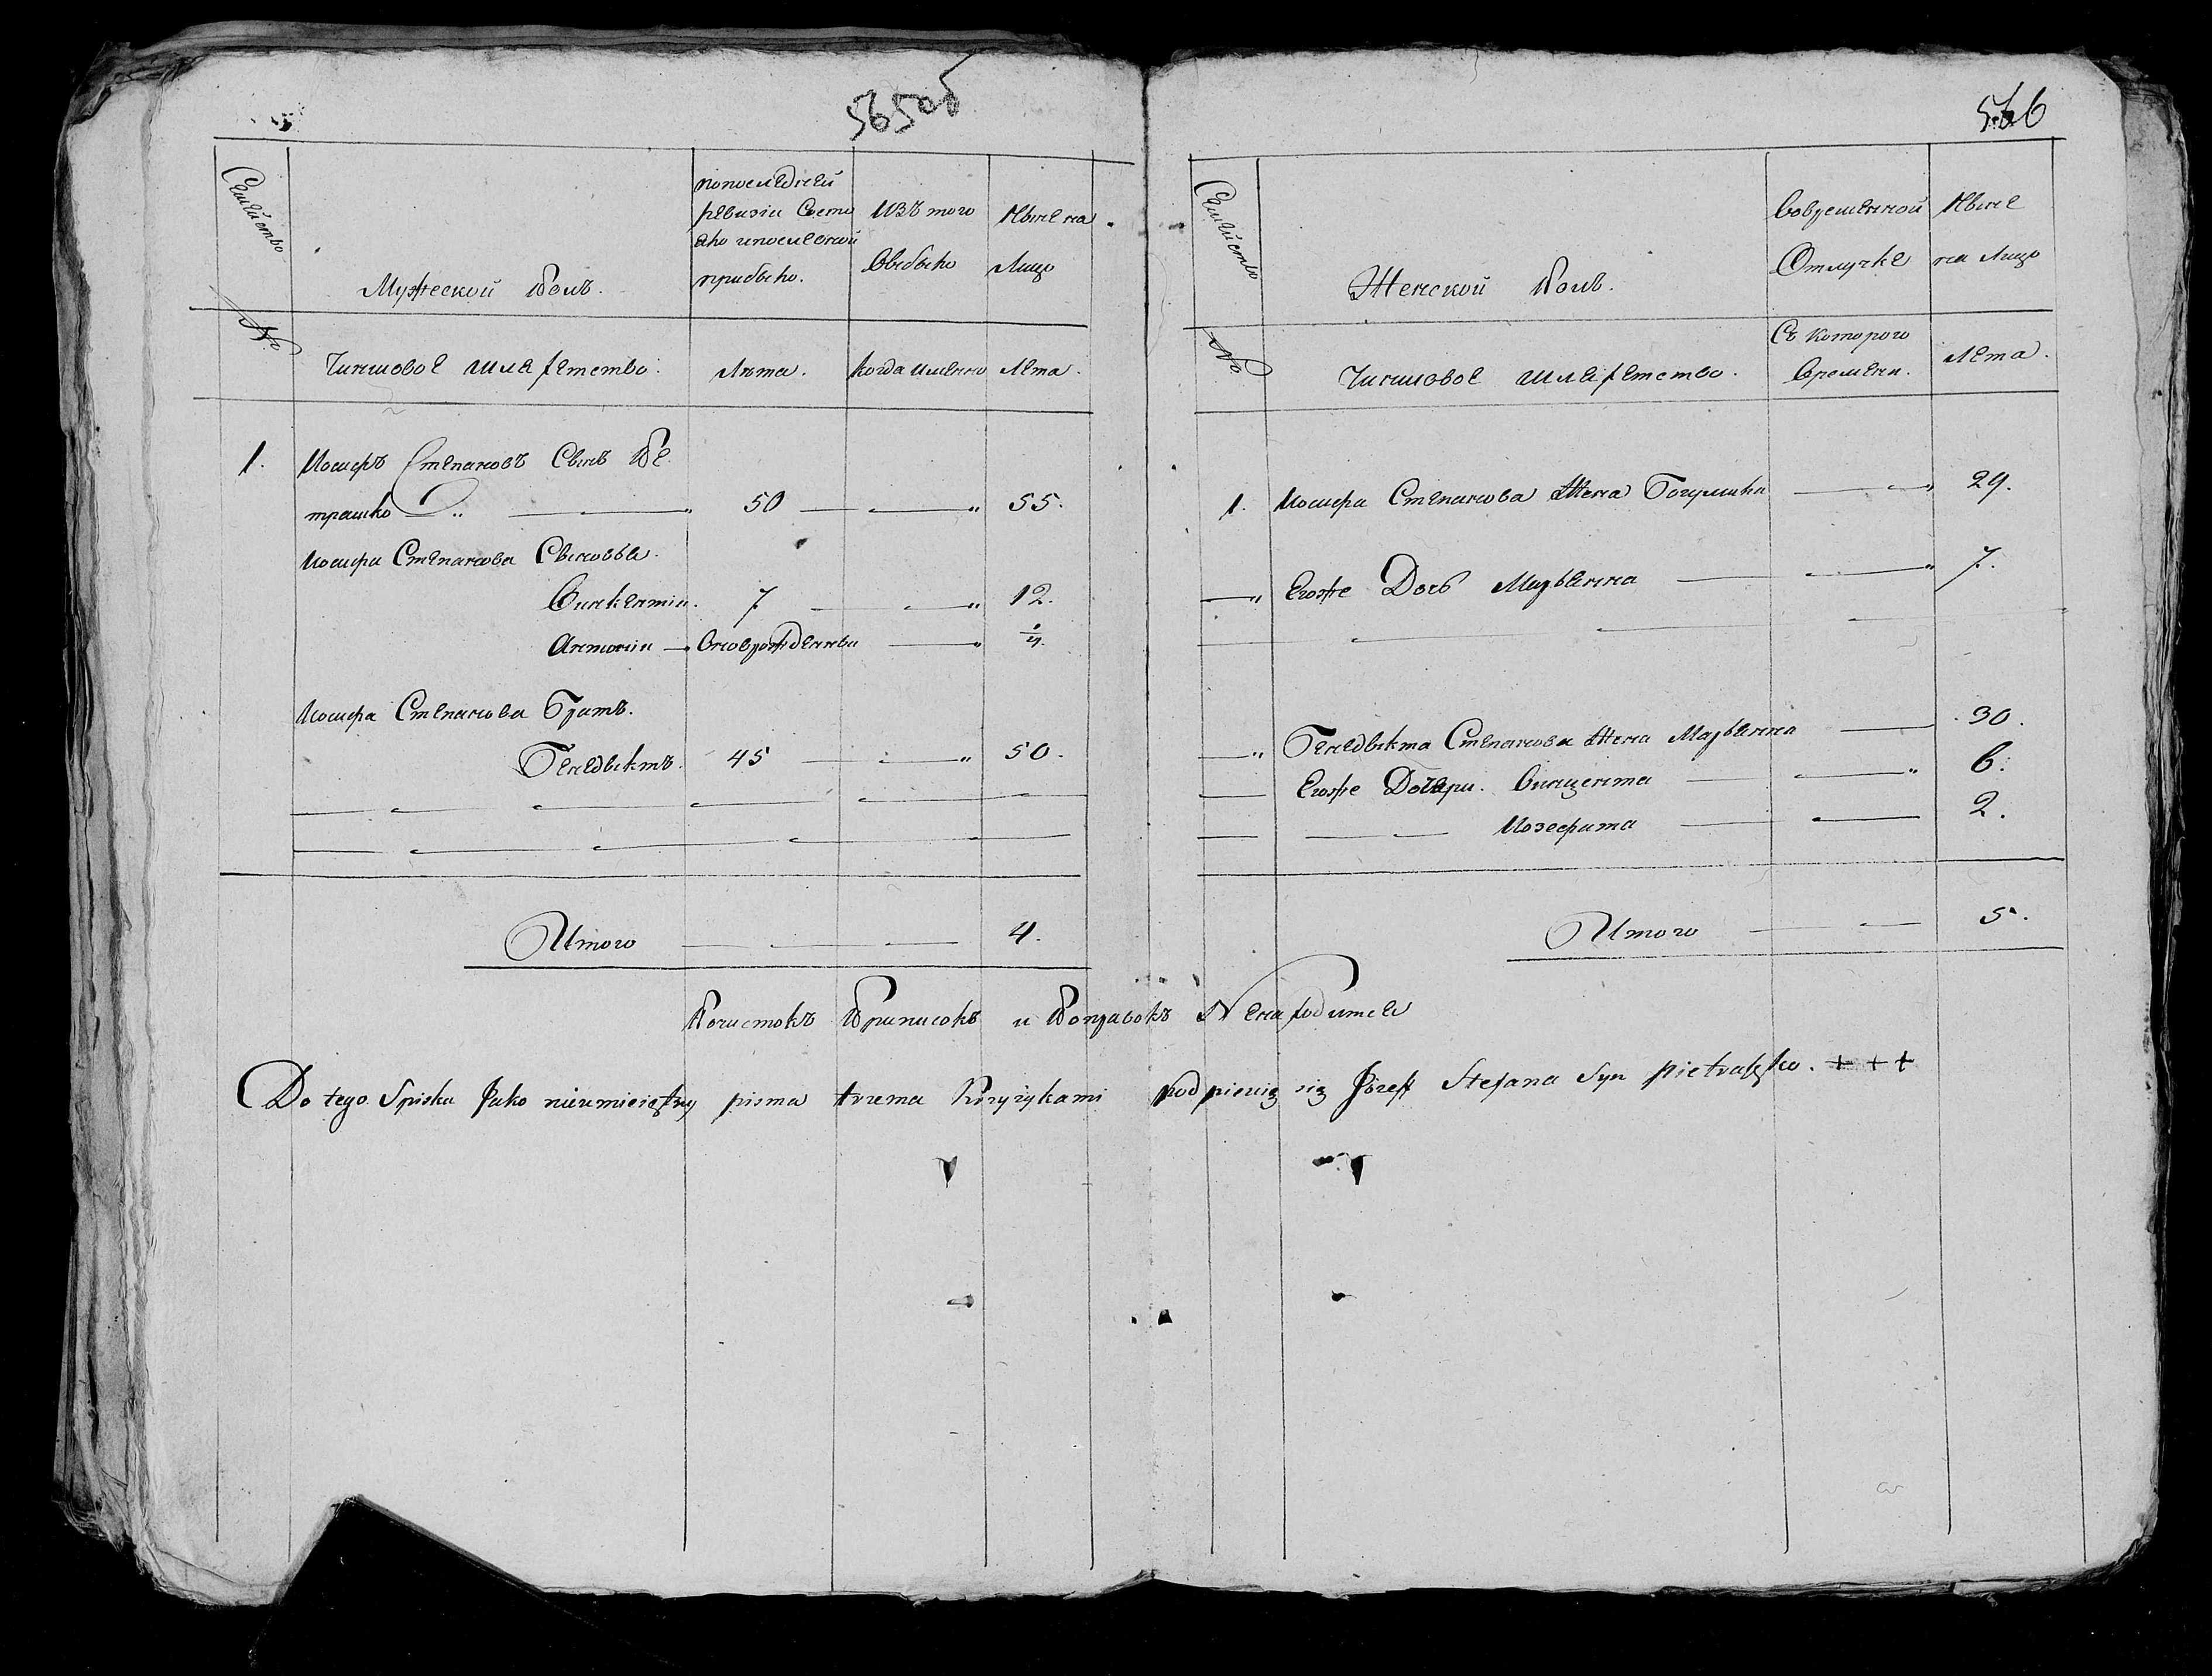 565об
Семейство
№
Мужеской Полъ.
попоследней
ревизіи Состо
яло ипосленей
прибыло.
Изъ того
Выбыло
Ныне на
Лицо
Чиншовое шляхетство.
Лѣта.
Когда именно
Лета.
1. Иосифъ Степановъ Сынъ Пе
трашко „ 50 „ 55.
Иосифа Степанова Сыновья.
Викентіи. 7 „ 12.
Антоніи Вноврожденны „
Иосифа Степанова Братъ.
Бенедыктъ. 45 „ 50.
Итого 4.
566
Семейство
№
Женской Полъ.
Вовременной
Отлучке
Ныне
на Лицо
Чиншовое шляхетство.
Съ которого
Времени.
Лета.
1. Иосифа Степанова Жена Богумила „ 29.
„ Егоже Дочь Марьянна „ 7.
„ Бенедыкта Степанова Жена Марьянна 30.
Егоже Дочери. Винцента „ 6.
Иозефата 2.
Итого 5.
Почистокъ Приписокъ и Поправокъ Ненаходится
Do tego Spisku Jako nieumieiętny pisma trzema Krzyżykami podpisuię się Józeff Stefana Syn pietraszko. + + +